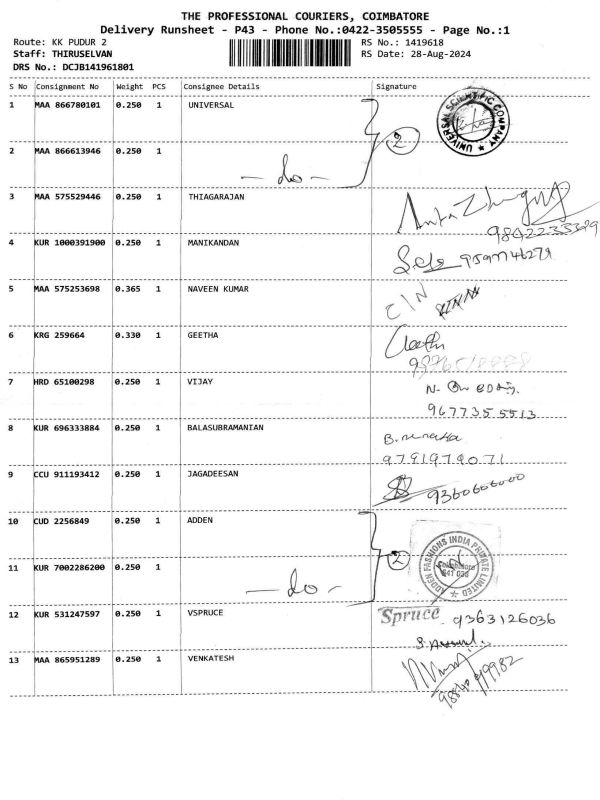 THE PROFESSIONAL COURIERS, COIMBATORE
Delivery Runsheet - P43 - Phone No.:0422-3505555 - Page No.:1
Route: KK PUDUR 2 RS No.: 1419618
Staff: THIRUSELVAN RS Date: 28-Aug-2024
DRS No.: DCJB141961801
S No Consignment No Weight PCS Consignee Details Signature
1 MAA 866780101 0.250 1 UNIVERSAL
UNIVERSAL SCIENTIFIC COMPANY
2
2 MAA 866613946 0.250 1
- do -
3 MAA 575529446 0.250 1 THIAGARAJAN
4 KUR 1000391900 0.250 1 MANIKANDAN
5 MAA 575253698 0.365 1 NAVEEN KUMAR
C/N
6 KRG 259664 0.330 1 GEETHA
Geetha
7 HRD 65100298 0.250 1 VIJAY
9677355513
8 KUR 696333884 0.250 1 BALASUBRAMANIAN
9791979071
9 CCU 911193412 0.250 1 JAGADEESAN
9360606000
10 CUD 2256849 0.250 1 ADDEN
ADDEN FASHIONS INDIA PRIVATE LIMITED
Coimbatore
641 038
2
11 KUR 7002286200 0.250 1
- do -
12 KUR 531247597 0.250 1 VSPRUCE
Spruce 9363126036
13 MAA 865951289 0.250 1 VENKATESH